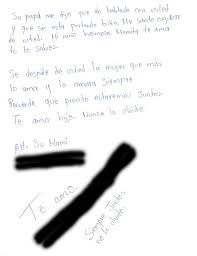 Su papá me dijo que ha hablado con usted
y que se esta portando bien. Me siento orgullosa
de usted. Mi niño hermoso Mamita te ama
tu lo sabes.
Se despide de usted la mujer que mas
lo ama y lo amara siempre
Recuerde que pronto estaremos Juntos.
Te amo hijo. Nunca lo olvide.
Att. Su Mami
Te amo.
Siempre Juntos
no lo olvide